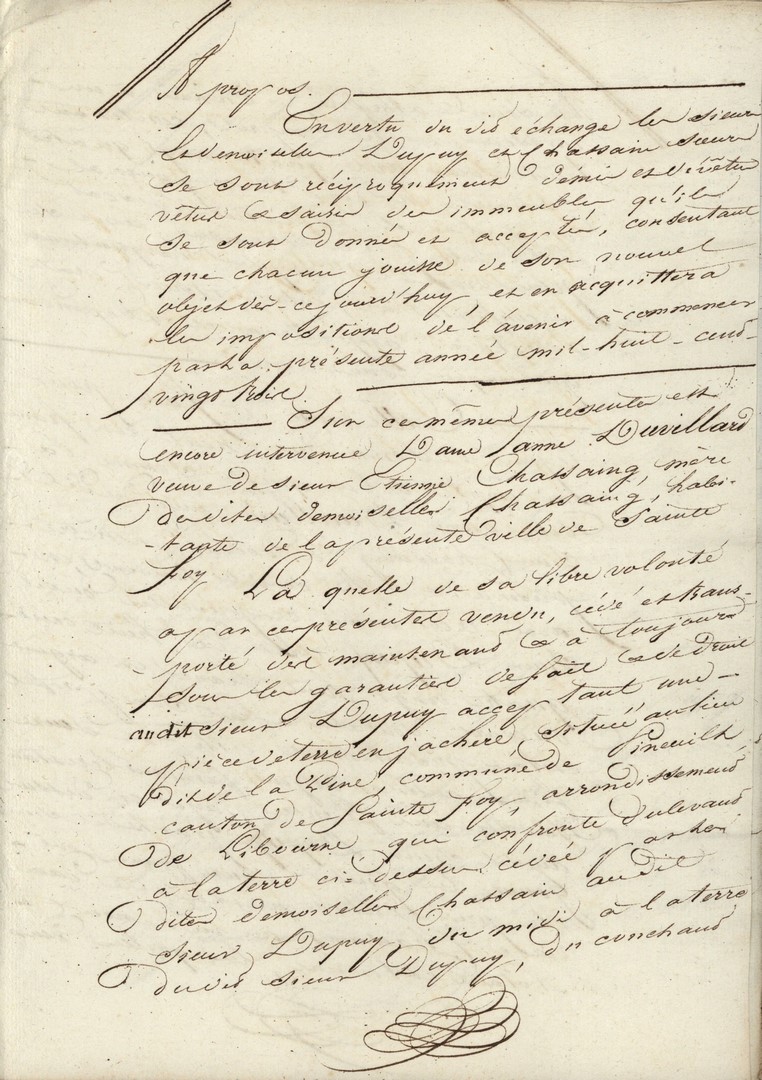 A propos.
En vertu du dit échange les sieur
et demoiselles Dupuy et Chassain sœurs
se sont réciproquement démis et dévêtus
vêtus & saisis des immeubles qu'ils
se sont donnés et acceptés, consentant
que chacun jouisse de son nouvel
objet dès-cejourd'huy, et en acquittera
les impositions de l'avenir à commencer
par la présente année mil-huit-cent-
vingt trois.
Sur ces mêmes présentes est
encore intervenue Dame anne Duvillard
veuve de sieur Etienne Chassaing, mère
desdites demoiselles Chassaing, habi-
-tante de la présente ville de Sainte
Foy La quelle de sa libre volonté
a par ces présentes vendu, cédé et trans-
-porté dès maintenant & à toujours
sous les garanties de fait & de droit
audit sieur Dupuy acceptant une-
pièce de terre en jachère, située au lieu
dit de la Pine, commune de Pineuilh
canton de Sainte Foy, arrondissement
de Libourne qui confronte du levant
à la terre ci-dessus cédée par les
dites demoiselles Chassain audit
sieur Dupuy, du midi à la terre
dudit sieur Dupuy, du couchant